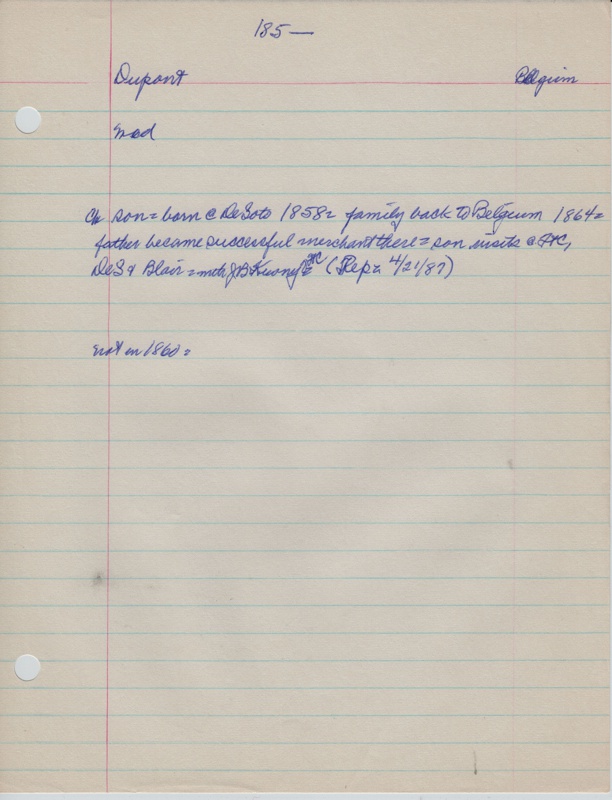 185—
Dupont Belgium
nod
Ch son = born @ DeSoto 1858 = family back to Belgium 1864 =
father became successful merchant there = son visits @ FtC,
DeS & Blair = (Rep = 4/21/87)
not in 1860 =